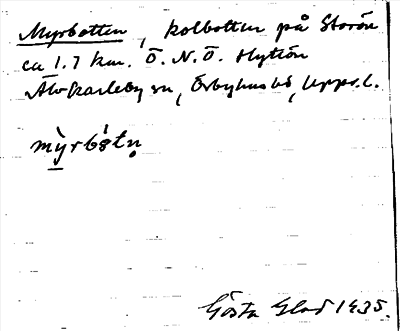 Myrbotten, kolbotten på Storön
ca 1.7 km. Ö. N. Ö. Hyttön
Älvkarleby sn, Örbyhus hd, Uppsl. l.
mỳrbòtn̥
Gösta Glad 1935.